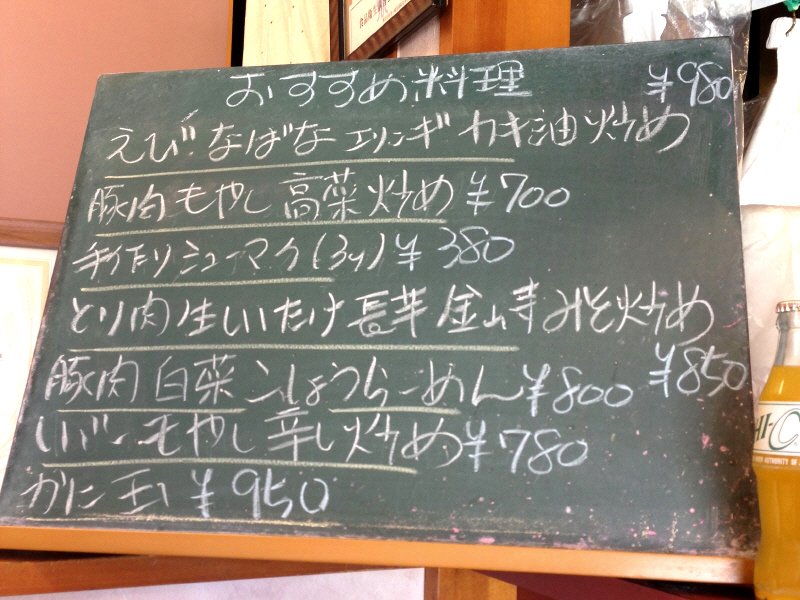 おすすめ料理
¥980
えび なばな エリンギ カキ油炒め
豚肉 もやし 高菜炒め ¥700
手作りシューマイ(3ケ) ¥380
とり肉 生しいたけ 長芋 金山寺みそ炒め
¥850
豚肉 白菜 こしょうらーめん ¥800
レバー もやし 辛し炒め ¥780
かに玉 ¥950
HI-C